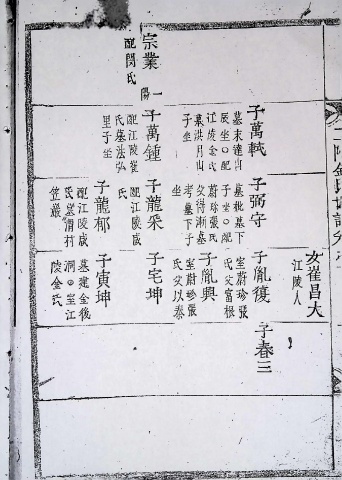 宗業
配閔氏
子萬軾
墓末達山
辰坐○配
江陵金氏
墓洪月山
子坐
子萬鍾
配江陵崔
氏墓法弘
里子坐
子弼守
墓枇墓下
子坐○配
蔚珍張氏
父得漸墓
考墓下子
坐
子龍采
配江陵咸
氏
子龍郁
配江陵咸
氏墓 村
笠巖
女崔昌大
江陵人
子胤復
室蔚珍張
氏父富根
子胤興
室蔚珍張
氏父以泰
子宅坤
子寅坤
墓建金後
洞○室江
陵金氏
子春三